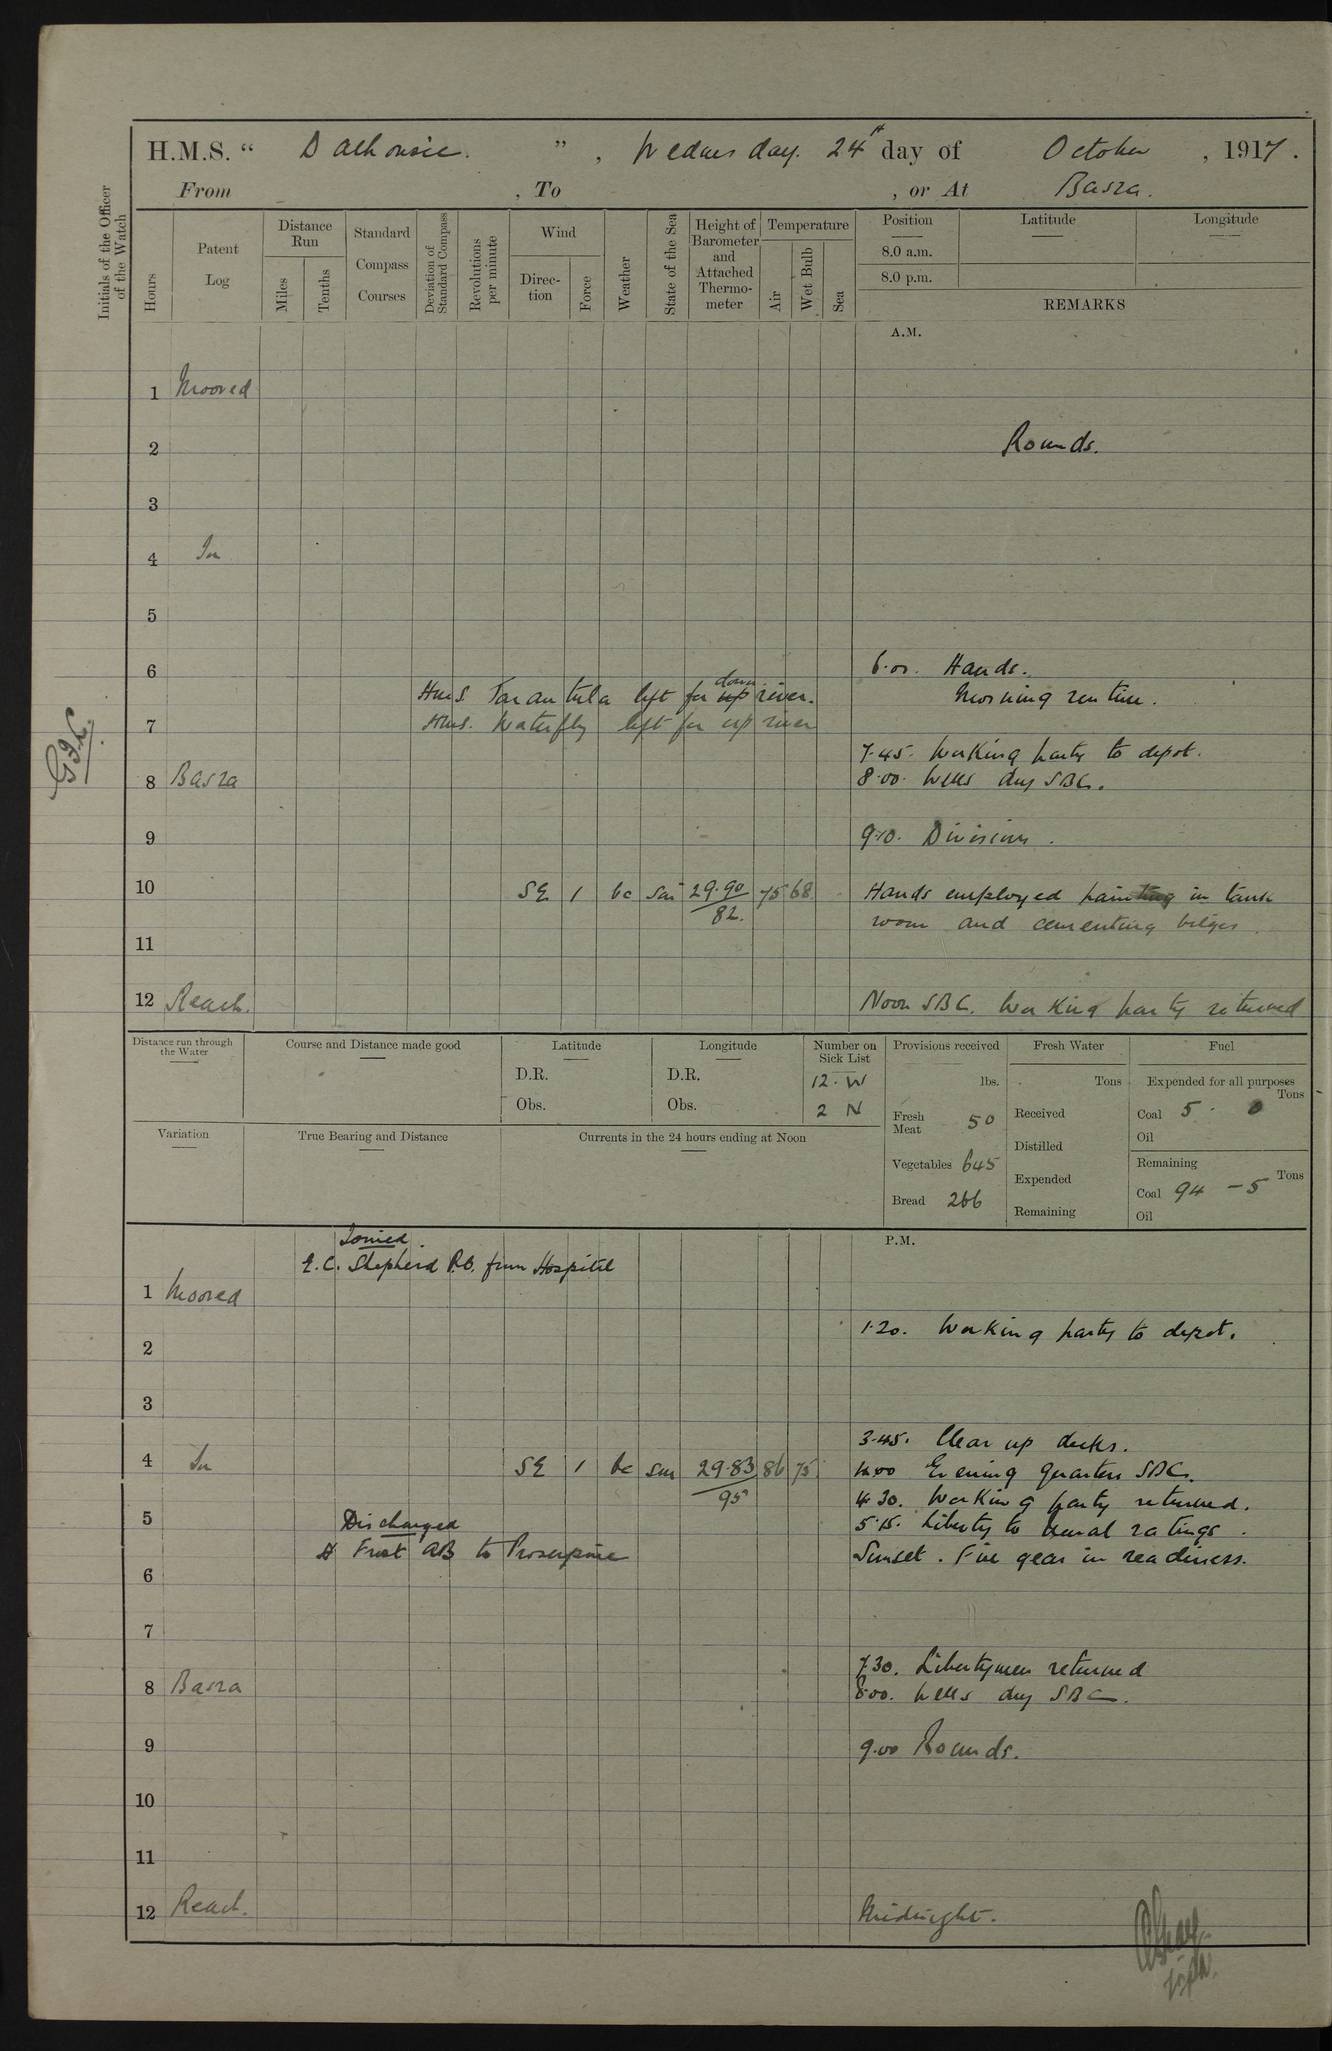 H.M.S. “ Dalhousie. ” , Wednesday. 24th day of October , 1917.
From , To , or At Basra.
Initials of the Officer of the Watch
Hours
Patent Log
Distance Run
Miles
Tenths
Standard Compass Courses
Deviation of Standard Compass
Revolutions per minute
Wind
Direction
Force
Weather
State of the Sea
Height of Barometer and Attached Thermometer
Temperature
Air
Wet Bulb
Sea
Position Latitude Longitude
8.0 a.m.
8.0 p.m.
REMARKS
A.M.
1 Moored
2 Rounds.
3
4 In
5
6 6.00. Hands.
HMS Tarantula left for up down river. Morning routine.
7 HMS. Waterfly left for up river
7.45. Working party to depot.
8 Basra 8.00. Wells dry SBC.
9 9.10. Divisions.
10 SE 1 bc sm 29.90 75 68 Hands employed painting in tank
82. room and cementing bilges.
11
12 Reach. Noon SBC. Working party returned
Distance run through the Water
Course and Distance made good
Latitude
D.R.
Obs.
Longitude
D.R.
Obs.
Number on Sick List
12. W
2 N
Provisions received
lbs.
Fresh Meat 50
Vegetables 645
Bread 266
Fresh Water
Tons
Received
Distilled
Expended
Remaining
Fuel
Expended for all purposes
Tons
Coal 5 . 0
Oil
Remaining
Tons
Coal 94 - 5
Oil
Variation
True Bearing and Distance
Currents in the 24 hours ending at Noon
P.M.
Joined.
E.C. Shepherd P.O. from Hospital
1 Moored
1.20. Working party to depot.
2
3
3.45. Clear up decks.
4 In SE 1 bc sm 29.83 86 75 4.00 Evening Quarters SBC.
95 4.30. Working party returned.
5 Discharged 5.15. Liberty to usual ratings.
Frost AB to Proserpine Sunset. Fire gear in readiness.
6
7
7.30. Libertymen returned
8 Basra 8.00. Wells dry SBC.
9 9.00 Rounds.
10
11
12 Reach. Midnight.